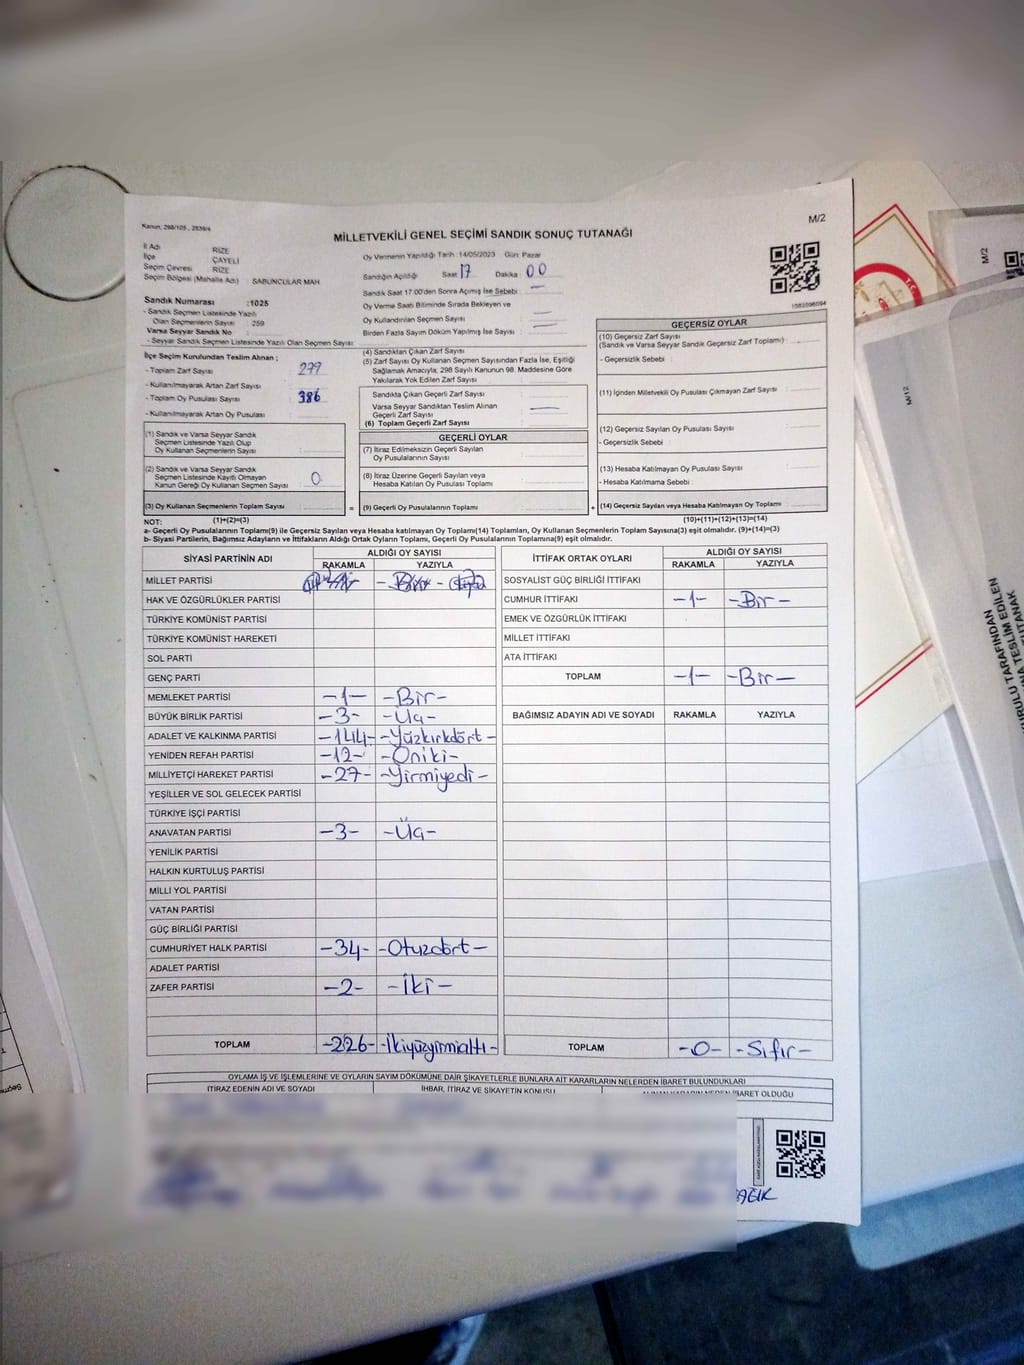 Kanun, 298/105 , 2839/4
M/2
MİLLETVEKİLİ GENEL SEÇİMİ SANDIK SONUÇ TUTANAĞI
İl Adı RİZE
İlçe ÇAYELİ
Seçim Çevresi RİZE
Seçim Bölgesi (Mahalle Adı) : SABUNCULAR MAH
Oy Vermenin Yapıldığı Tarih :14/05/2023 Gün: Pazar
Sandığın Açıldığı Saat 17 Dakika : 00
Sandık Saat 17:00'den Sonra Açılmış İse Sebebi :
Oy Verme Saati Bitiminde Sırada Bekleyen ve
Oy Kullandırılan Seçmen Sayısı :
Birden Fazla Sayım Döküm Yapılmış İse Sayısı :
Sandık Numarası :1025
- Sandık Seçmen Listesinde Yazılı
Olan Seçmenlerin Sayısı : 259
Varsa Seyyar Sandık No
- Seyyar Sandık Seçmen Listesinde Yazılı Olan Seçmen Sayısı:
İlçe Seçim Kurulundan Teslim Alınan ;
- Toplam Zarf Sayısı : 279
- Kullanılmayarak Artan Zarf Sayısı
- Toplam Oy Pusulası Sayısı : 386
- Kullanılmayarak Artan Oy Pusulası :
(1) Sandık ve Varsa Seyyar Sandık
Seçmen Listesinde Yazılı Olup
Oy Kullanan Seçmenlerin Sayısı :
(2) Sandık ve Varsa Seyyar Sandık
Seçmen Listesinde Kayıtlı Olmayan
Kanun Gereği Oy Kullanan Seçmen Sayısı : 0
(3) Oy Kullanan Seçmenlerin Toplam Sayısı :
(4) Sandıktan Çıkan Zarf Sayısı :
(5) Zarf Sayısı Oy Kullanan Seçmen Sayısından Fazla İse, Eşitliği
Sağlamak Amacıyla, 298 Sayılı Kanunun 98. Maddesine Göre
Yakılarak Yok Edilen Zarf Sayısı :
Sandıkta Çıkan Geçerli Zarf Sayısı :
Varsa Seyyar Sandıktan Teslim Alınan
Geçerli Zarf Sayısı :
(6) Toplam Geçerli Zarf Sayısı :
GEÇERLİ OYLAR
(7) İtiraz Edilmeksizin Geçerli Sayılan
Oy Pusulalarının Sayısı :
(8) İtiraz Üzerine Geçerli Sayılan veya
Hesaba Katılan Oy Pusulası Toplamı :
= (9) Geçerli Oy Pusulalarının Toplamı :
GEÇERSİZ OYLAR
(10) Geçersiz Zarf Sayısı
(Sandık ve Varsa Seyyar Sandık Geçersiz Zarf Toplamı) :
- Geçersizlik Sebebi :
(11) İçinden Milletvekili Oy Pusulası Çıkmayan Zarf Sayısı :
(12) Geçersiz Sayılan Oy Pusulası Sayısı :
- Geçersizlik Sebebi :
(13) Hesaba Katılmayan Oy Pusulası Sayısı :
- Hesaba Katılmama Sebebi :
+ (14) Geçersiz Sayılan veya Hesaba Katılmayan Oy Toplamı :
NOT: (1)+(2)=(3) (10)+(11)+(12)+(13)=(14)
a- Geçerli Oy Pusulalarının Toplamı(9) ile Geçersiz Sayılan veya Hesaba katılmayan Oy Toplamı(14) Toplamları, Oy Kullanan Seçmenlerin Toplam Sayısına(3) eşit olmalıdır. (9)+(14)=(3)
b- Siyasi Partilerin, Bağımsız Adayların ve İttifakların Aldığı Ortak Oyların Toplamı, Geçerli Oy Pusulalarının Toplamına(9) eşit olmalıdır.
SİYASİ PARTİNİN ADI ALDIĞI OY SAYISI
RAKAMLA YAZIYLA
MİLLET PARTİSİ
HAK VE ÖZGÜRLÜKLER PARTİSİ
TÜRKİYE KOMÜNİST PARTİSİ
TÜRKİYE KOMÜNİST HAREKETİ
SOL PARTİ
GENÇ PARTİ
MEMLEKET PARTİSİ -1- -Bir-
BÜYÜK BİRLİK PARTİSİ -3- -Üç-
ADALET VE KALKINMA PARTİSİ -144- -Yüzkırkdört-
YENİDEN REFAH PARTİSİ -12- -Oniki-
MİLLİYETÇİ HAREKET PARTİSİ -27- -Yirmiyedi-
YEŞİLLER VE SOL GELECEK PARTİSİ
TÜRKİYE İŞÇİ PARTİSİ
ANAVATAN PARTİSİ -3- -Üç-
YENİLİK PARTİSİ
HALKIN KURTULUŞ PARTİSİ
MİLLİ YOL PARTİSİ
VATAN PARTİSİ
GÜÇ BİRLİĞİ PARTİSİ
CUMHURİYET HALK PARTİSİ -34- -Otuzdört-
ADALET PARTİSİ
ZAFER PARTİSİ -2- -İki-
TOPLAM -226- -İkiyüzyirmialtı-
İTTİFAK ORTAK OYLARI ALDIĞI OY SAYISI
RAKAMLA YAZIYLA
SOSYALİST GÜÇ BİRLİĞİ İTTİFAKI
CUMHUR İTTİFAKI -1- -Bir-
EMEK VE ÖZGÜRLÜK İTTİFAKI
MİLLET İTTİFAKI
ATA İTTİFAKI
TOPLAM -1- -Bir-
BAĞIMSIZ ADAYIN ADI VE SOYADI RAKAMLA YAZIYLA
TOPLAM -0- -Sıfır-
OYLAMA İŞ VE İŞLEMLERİNE VE OYLARIN SAYIM DÖKÜMÜNE DAİR ŞİKAYETLERLE BUNLARA AİT KARARLARIN NELERDEN İBARET BULUNDUKLARI
İTİRAZ EDENİN ADI VE SOYADI İHBAR, İTİRAZ VE ŞİKAYETİN KONUSU
M/2
M/2
TARAFINDAN
TESLİM EDİLEN
TUTANAK